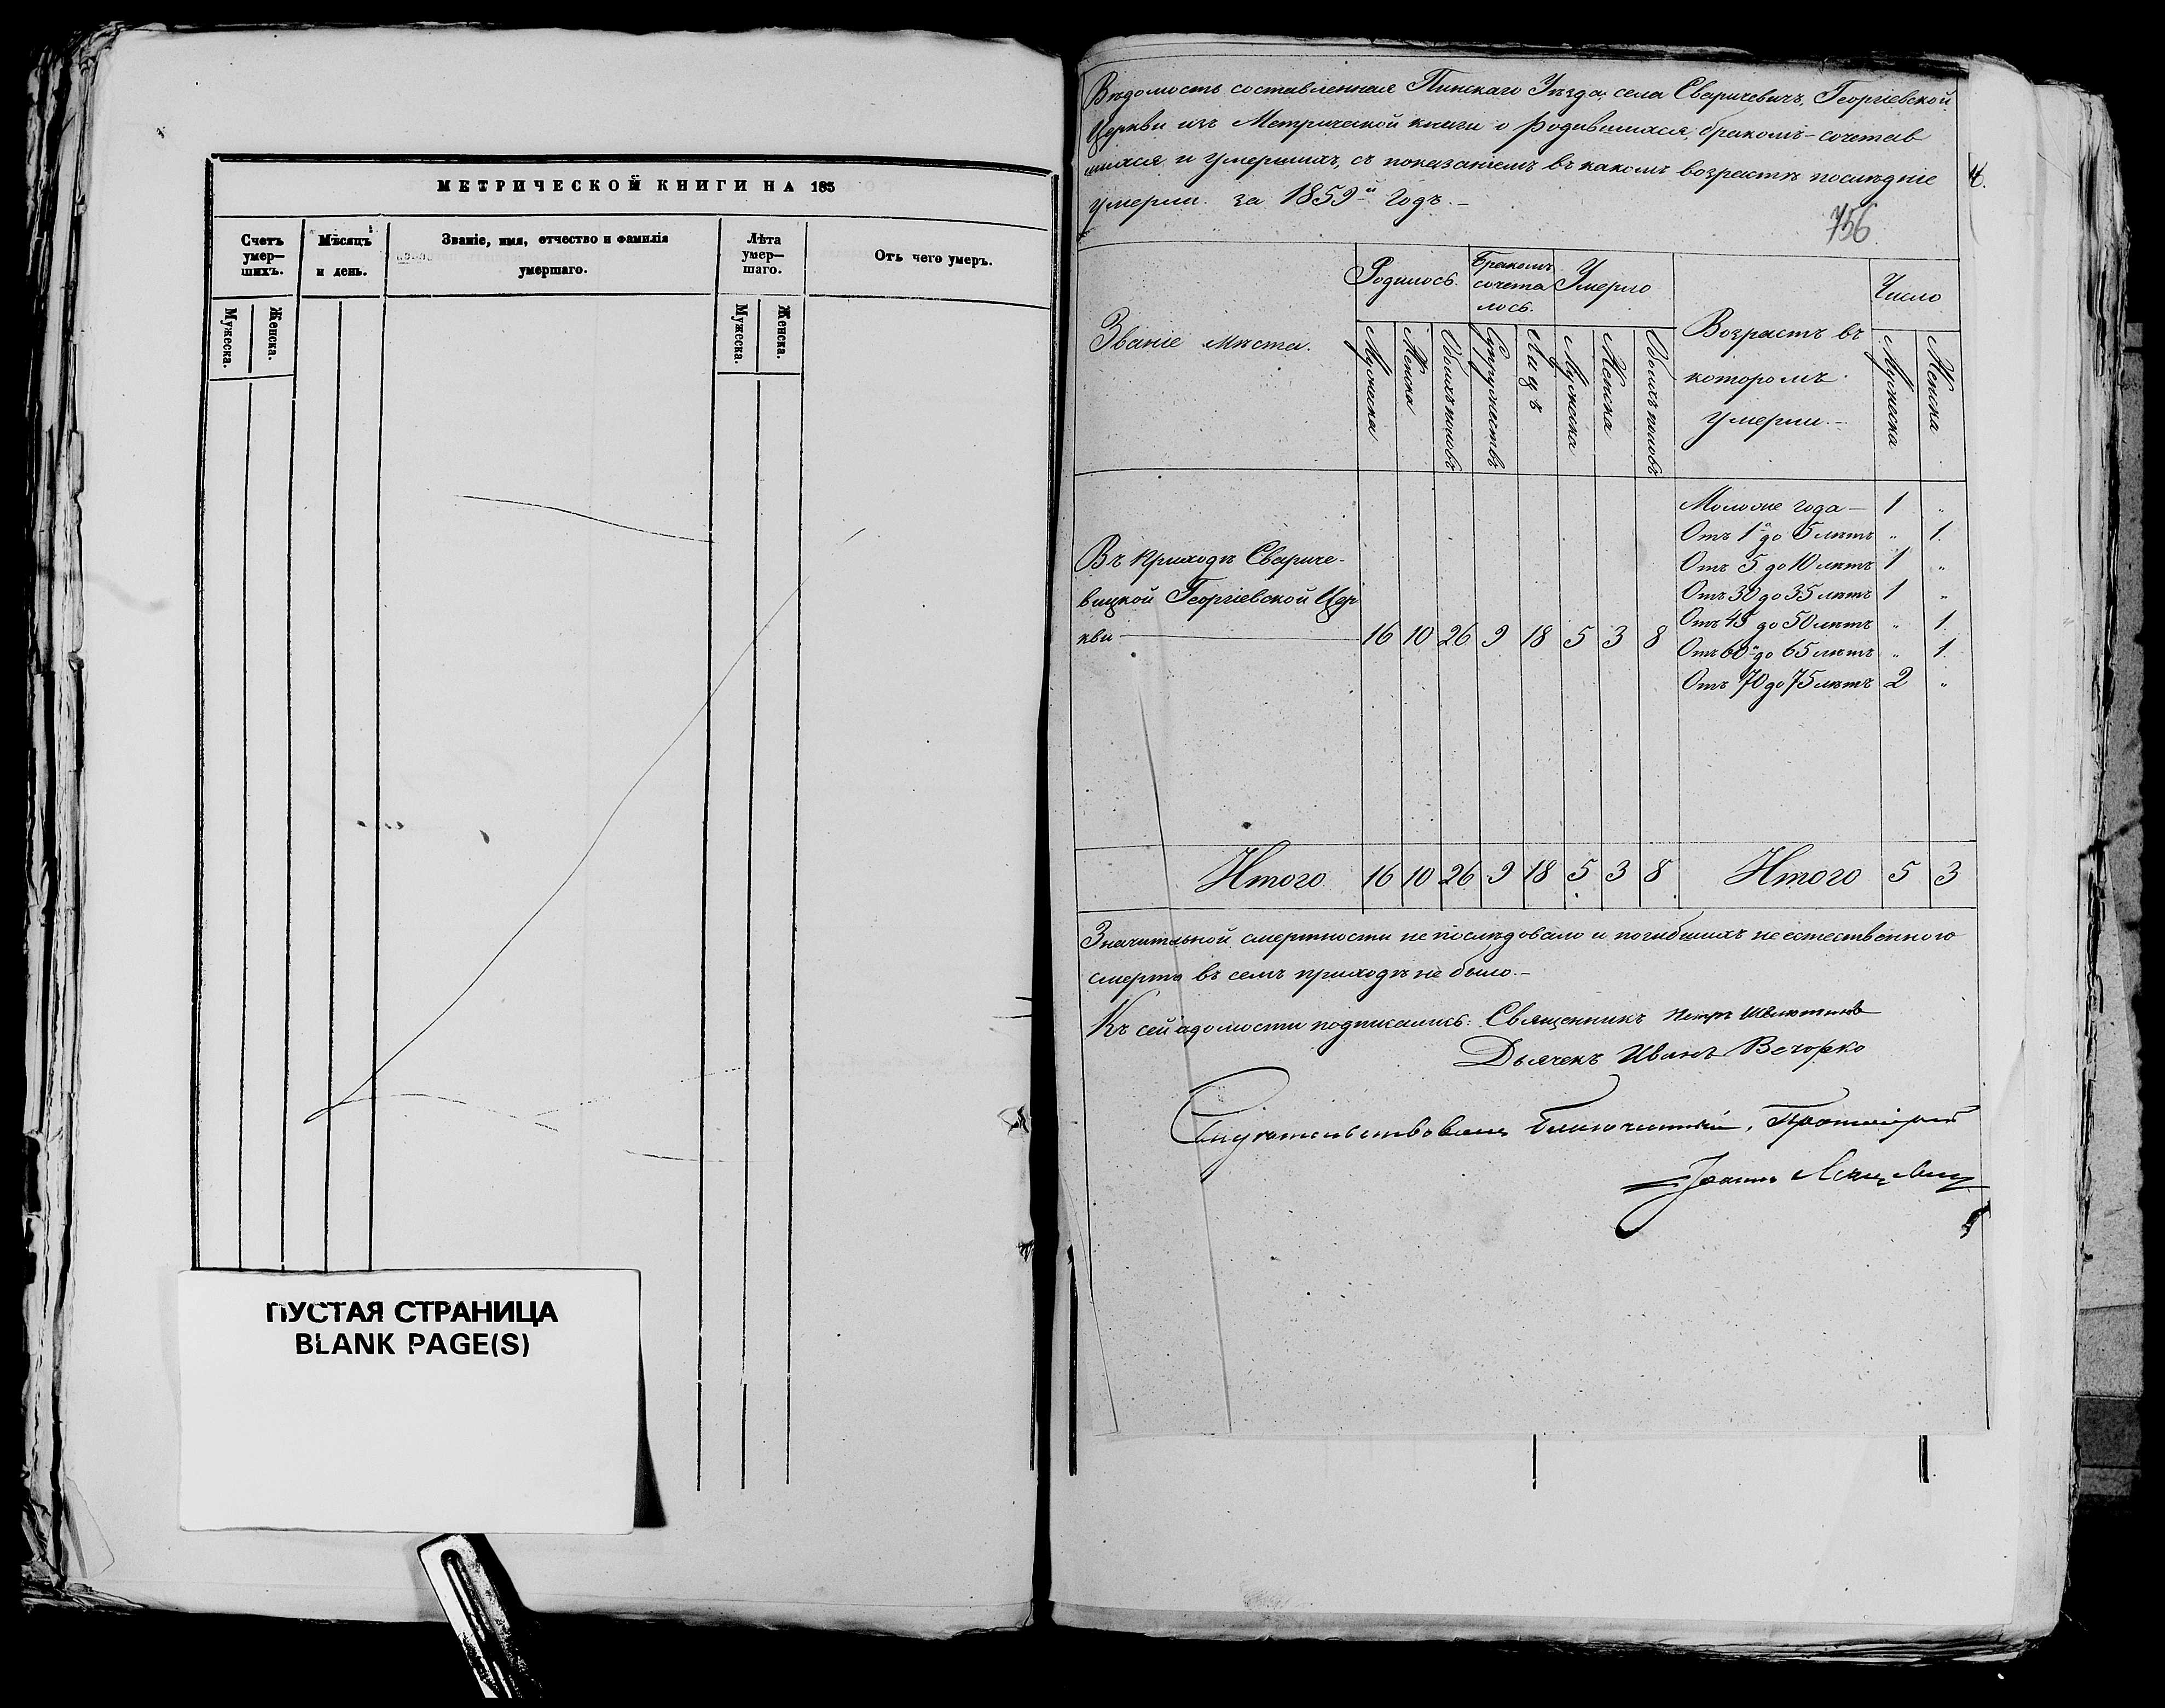 МЕТРИЧЕСКОЙ КНИГИ НА 185
Счетъ умер—шихъ.
Мѣсяцъ и день.
Званіе, имя, отчество и фамилія умершаго.
Лѣта умер—шаго.
Отъ чего умеръ.
Мужеска.
Женска.
Мужеска.
Женска.
ПУСТАЯ СТРАНИЦА
BLANK PAGE(S)
Вѣдомость составленная Пинскаго Уѣзда, села Сваричевичъ, Георгіевской
Церкви изъ Метрической книги о родившихся, бракомъ-сочетав
шихся и умершихъ, съ показаніемъ въ какомъ возрастѣ послѣдніе
умерли за 1859й годъ.
4.
756
Званіе мѣста.
Родилось.
Бракомъ сочета лось.
Умерло
Возрастъ въ которомъ умерли.
Число
Мужеска
Женска
Обоихъ половъ
Супружествъ
Лицъ
Мужеска
Женска
Обоихъ половъ
Мужеска
Женска
Моложе года — 1 „
Отъ 1й до 5 лѣтъ „ 1.
Отъ 5 до 10 лѣтъ 1 „
Отъ 30 до 35 лѣтъ 1 „
Отъ 45 до 50 лѣтъ „ 1.
Отъ 60 до 65 лѣтъ „ 1.
Отъ 70 до 75 лѣтъ 2 „
Въ приходѣ Свариче-
вицкой Георгіевской Цер
кви — 16 10 26 9 18 5 3 8
Итого 16 10 26 9 18 5 3 8 Итого 5 3
Значительной смертности не послѣдовало и погибшихъ неестественною
смертію въ семъ приходѣ не было.—
Къ сей вѣдомости подписались: Священникъ Петръ
Дьячекъ Иванъ Вечорко
Благочинный, Протоіерей
Іоаннъ